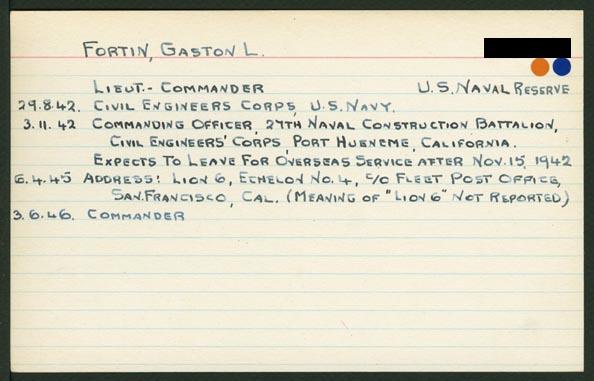 FORTIN, GASTON L.
LIEUT.- COMMANDER U.S. NAVAL RESERVE
29.8.42. CIVIL ENGINEERS CORPS, U.S. NAVY.
3.11.42 COMMANDING OFFICER, 27TH NAVAL CONSTRUCTION BATTALION,
CIVIL ENGINEERS' CORPS, PORT HUENEME, CALIFORNIA.
EXPECTS TO LEAVE FOR OVERSEAS SERVICE AFTER NOV. 15, 1942
6.4.45 ADDRESS: LION 6, ECHELON NO. 4, C/O FLEET POST OFFICE,
SAN. FRANCISCO, CAL. (MEANING OF "LION 6" NOT REPORTED)
3.6.46. COMMANDER